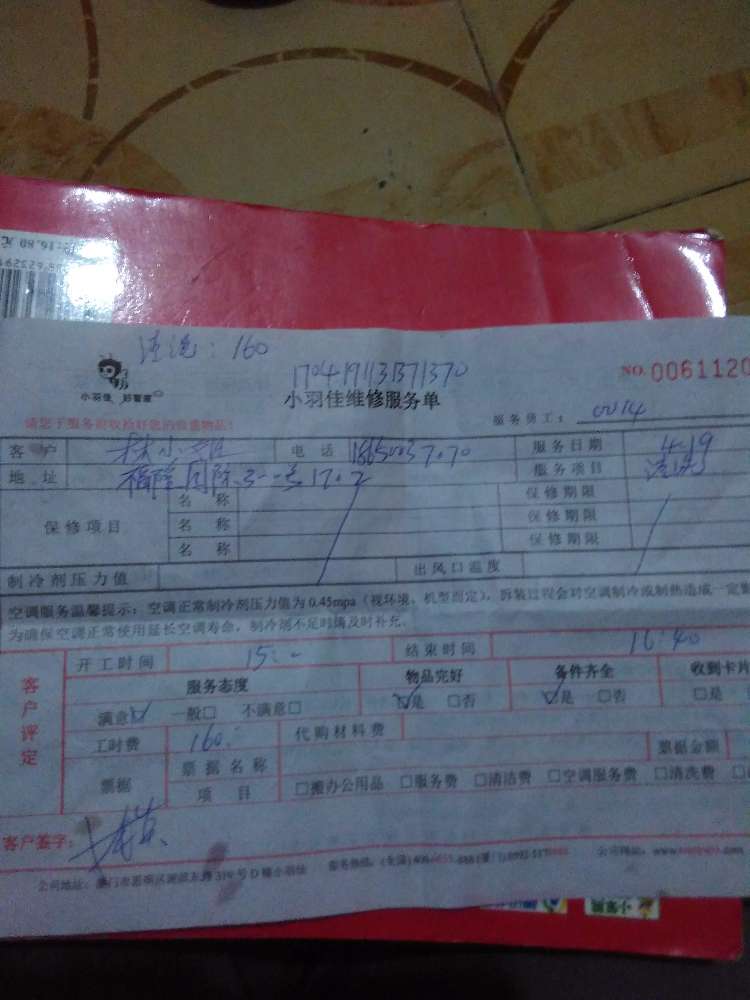 16.80 元
清洗：160
170419113B71370
小羽佳 好管家
小羽佳维修服务单
NO. 0061120
请您于服务前收拾好您的贵重物品！
服务员工： 0014
客户 林小姐 电话 服务日期 4-19
地址 福隆国际 1702 服务项目 清洗
保修项目
名称 保修期限
名称 保修期限
名称 保修期限
制冷剂压力值 出风口温度
空调服务温馨提示：空调正常制冷剂压力值为 0.45mpa（视环境、机型而定），拆装过程会对空调制冷或制热造成一定
为确保空调正常使用延长空调寿命，制冷剂不足时请及时补充。
客户评定
开工时间 15: 结束时间 16:40
服务态度 物品完好 备件齐全 收到卡片
满意☑ 一般□ 不满意□ ☑是 □否 ☑是 □否 □是
工时费 160. 代购材料费
票据 票据名称 票据金额
项目 □搬办公用品 □服务费 □清洁费 □空调服务费 □清洗费
客户签字：
公司地址：厦门市思明区 D 幢小羽佳 服务热线：(全国)400 公司网站：www.